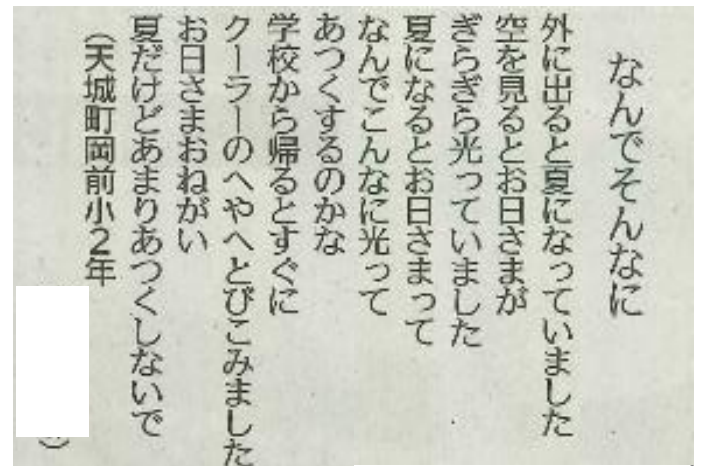 なんでそんなに
外に出ると夏になっていました
空を見るとお日さまが
ぎらぎら光っていました
夏になるとお日さまって
なんでこんなに光って
あつくするのかな
学校から帰るとすぐに
クーラーのへやへとびこみました
お日さまおねがい
夏だけどあまりあつくしないで
（天城町岡前小２年
）